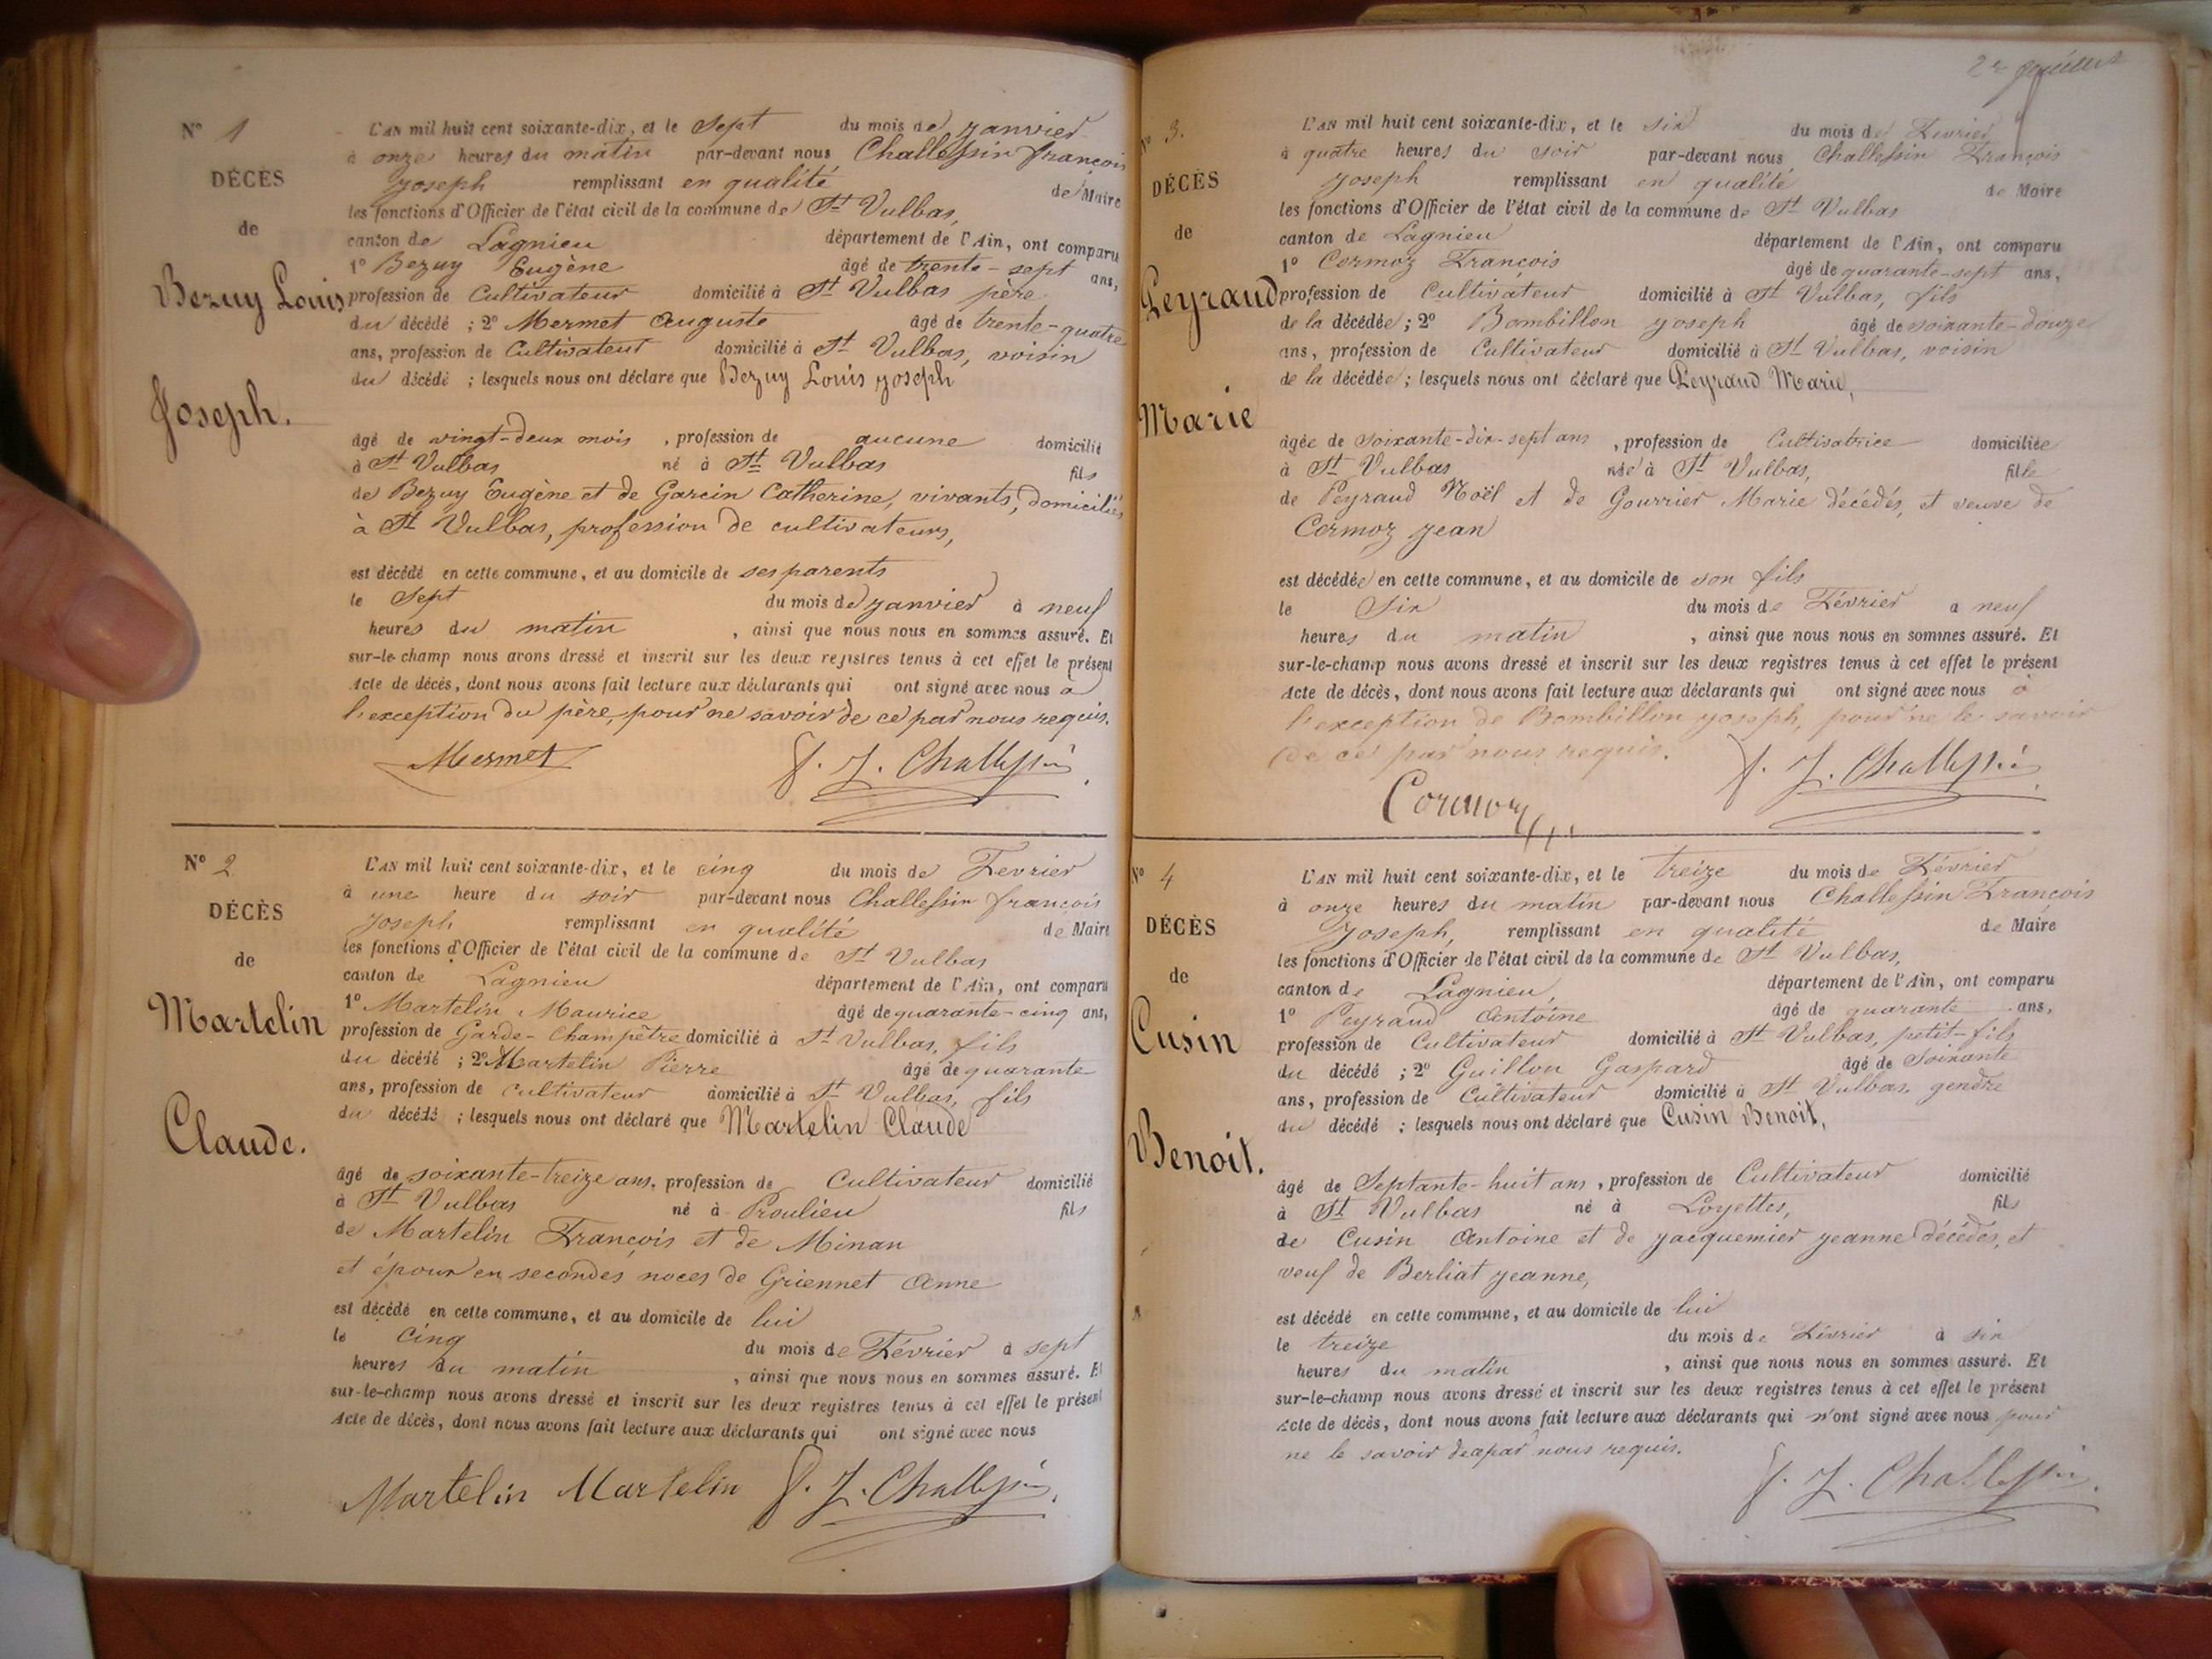 N° 1
DÉCÈS
de
Bezuy Louis
Joseph.
L'AN mil huit cent soixante-dix, et le Sept du mois de Janvier
à onze heures du matin par-devant nous Challessin françois
Joseph remplissant en qualité de Maire
les fonctions d'Officier de l'état civil de la commune de St Vulbas,
canton de Lagnieu département de l'Ain, ont comparu
1° Bezuy Eugène âgé de trente-sept ans,
profession de Cultivateur domicilié à St Vulbas père
du décédé ; 2° Mermet Auguste âgé de trente-quatre
ans, profession de Cultivateur domicilié à St Vulbas, voisin
du décédé ; lesquels nous ont déclaré que Bezuy Louis Joseph
âgé de vingt-deux mois , profession de aucune domicilié
à St Vulbas né à St Vulbas fils
de Bezuy Eugène et de Garcin Catherine, vivants, domiciliés
à St Vulbas, profession de cultivateurs,
est décédé en cette commune, et au domicile de ses parents
le Sept du mois de Janvier à neuf
heures du matin , ainsi que nous nous en sommes assuré. Et
sur-le-champ nous avons dressé et inscrit sur les deux registres tenus à cet effet le présent
Acte de décès, dont nous avons fait lecture aux déclarants qui ont signé avec nous à
l'exception du père, pour ne savoir de ce par nous requis.
Mermet F. J. Challessin
N° 2
DÉCÈS
de
Martelin
Claude.
L'AN mil huit cent soixante-dix, et le cinq du mois de Fevrier
à une heure du soir par-devant nous Challessin françois
Joseph remplissant en qualité de Maire
les fonctions d'Officier de l'état civil de la commune de St Vulbas
canton de Lagnieu département de l'Ain, ont comparu
1° Martelin Maurice âgé de quarante-cinq ans,
profession de Garde-Champêtre domicilié à St Vulbas, fils
du décédé ; 2° Martelin Pierre âgé de quarante
ans, profession de cultivateur domicilié à St Vulbas, fils
du décédé ; lesquels nous ont déclaré que Martelin Claude
âgé de soixante-treize ans, profession de Cultivateur domicilié
à St Vulbas né à Proulieu fils
de Martelin François et de Minan
et époux en secondes noces de Griennet Anne
est décédé en cette commune, et au domicile de lui
le Cinq du mois de Février à sept
heures du matin , ainsi que nous nous en sommes assuré. Et
sur-le-champ nous avons dressé et inscrit sur les deux registres tenus à cet effet le présent
Acte de décès, dont nous avons fait lecture aux déclarants qui ont signé avec nous
Martelin Martelin F. J. Challessin
2e
N° 3.
DÉCÈS
de
Peyraud
Marie
L'AN mil huit cent soixante-dix, et le six du mois de Fevrier
à quatre heures du soir par-devant nous Challessin François
Joseph remplissant en qualité de Maire
les fonctions d'Officier de l'état civil de la commune de St Vulbas
canton de Lagnieu département de l'Ain, ont comparu
1° Cormoz François âgé de quarante-sept ans,
profession de Cultivateur domicilié à St Vulbas, fils
de la décédée ; 2° Bombillon Joseph âgé de soixante-douze
ans, profession de Cultivateur domicilié à St Vulbas, voisin
de la décédée ; lesquels nous ont déclaré que Peyraud Marie,
âgée de soixante-dix-sept ans , profession de Cultivatrice domiciliée
à St Vulbas née à St Vulbas, fille
de Peyraud Noël et de Gourrier Marie décédés, et veuve de
Cormoz Jean
est décédée en cette commune, et au domicile de son fils
le Six du mois de Février a neuf
heures du matin , ainsi que nous nous en sommes assuré. Et
sur-le-champ nous avons dressé et inscrit sur les deux registres tenus à cet effet le présent
Acte de décès, dont nous avons fait lecture aux déclarants qui ont signé avec nous à
l'exception de Bombillon Joseph, pour ne le savoir
de ce par nous requis.
Cormoz F. J. Challessin
N° 4
DÉCÈS
de
Cusin
Benoit.
L'AN mil huit cent soixante-dix, et le treize du mois de Février
à onze heures du matin par-devant nous Challessin François
Joseph, remplissant en qualité de Maire
les fonctions d'Officier de l'état civil de la commune de St Vulbas,
canton de Lagnieu, département de l'Ain, ont comparu
1° Peyraud Antoine âgé de quarante ans,
profession de Cultivateur domicilié à St Vulbas, petit-fils
du décédé ; 2° Guillon Gaspard âgé de Soixante
ans, profession de Cultivateur domicilié à St Vulbas, gendre
du décédé ; lesquels nous ont déclaré que Cusin Benoit,
âgé de Septante-huit ans , profession de Cultivateur domicilié
à St Vulbas né à Loyettes, fils
de Cusin Antoine et de Jacquemier Jeanne décédés, et
veuf de Berliat Jeanne,
est décédé en cette commune, et au domicile de lui
le treize du mois de Février à six
heures du matin , ainsi que nous nous en sommes assuré. Et
sur-le-champ nous avons dressé et inscrit sur les deux registres tenus à cet effet le présent
Acte de décès, dont nous avons fait lecture aux déclarants qui n'ont signé avec nous pour
ne le savoir par nous requis.
F. J. Challessin